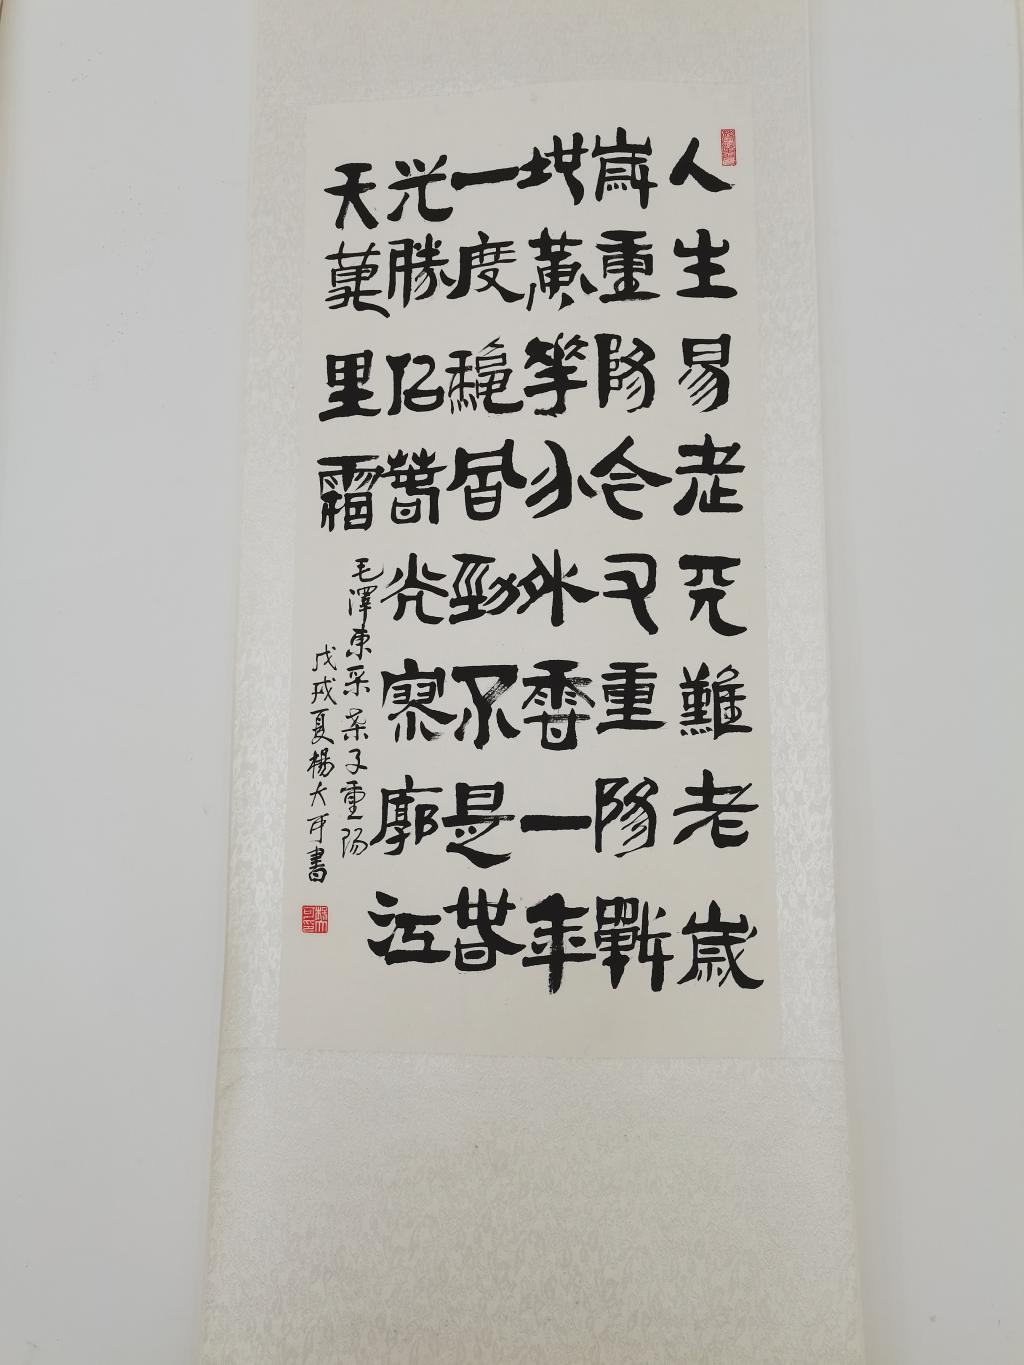 人生易老天難老歲
歲重陽今又重陽戰
地黃華分外香一年
一度秋風勁不是春
光勝似春光寥廓江
天萬里霜
毛澤東采桑子重陽
戊戌夏楊大書